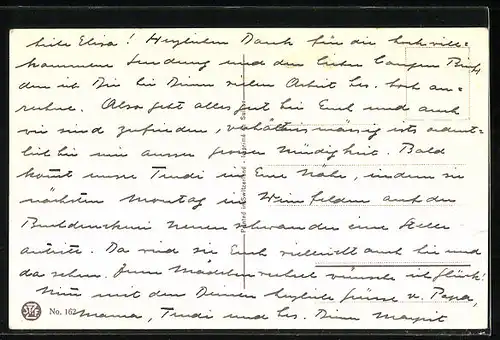 Liebe Elisa! Herzlichen Dank für die hochwill-
kommene Sendung und den lieben langen Brief
den ich Dir bei Deiner vielen Arbeit bes. hoch an-
rechne. Also geht alles gut bei Euch und auch
wir sind zufrieden, verhältnismässig ists ordent-
lich bei mir ausser grosser Müdigkeit. Bald
kommt unsre Trudi in Eure Nähe, indem sie
nächsten Montag in Weinfelden auf der
eine Stelle
antritt. Da wird sie Euch vielleicht auch hie und
da sehen. Zum Mädchen recht wünsche ich Glück!
Nun mit den Deinen herzliche Grüsse v. Papa,
Mama, Trudi und bes. Deiner Margrit
Printed in Switzerland - Imprimé en Suisse
No. 162